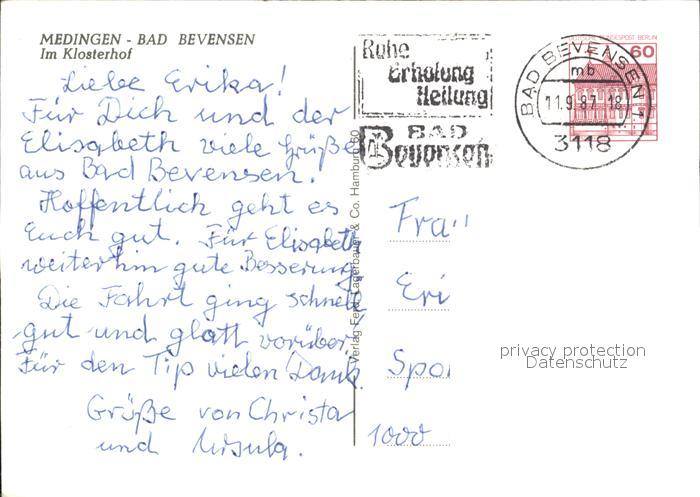 MEDINGEN - BAD BEVENSEN
Im Klosterhof
Liebe Erika!
Für Dich und der
Elisabeth viele Grüße
aus Bad Bevensen.
Hoffentlich geht es
Euch gut. Für Elisabeth
weiterhin gute Besserung.
Die Fahrt ging schnell
gut und glatt vorüber.
Für den Tip vielen Dank.
Grüße von Christa
und Ursula.
Verlag Ferd. Lagerbauer & Co. Hamburg 60
Ruhe
Erholung
Heilung
BAD
Bevensen
BAD BEVENSEN 1
mb
11.9.87-18
3118
DEUTSCHE BUNDESPOST BERLIN
60
Frau
Eri
Spa
1000
privacy protection
Datenschutz